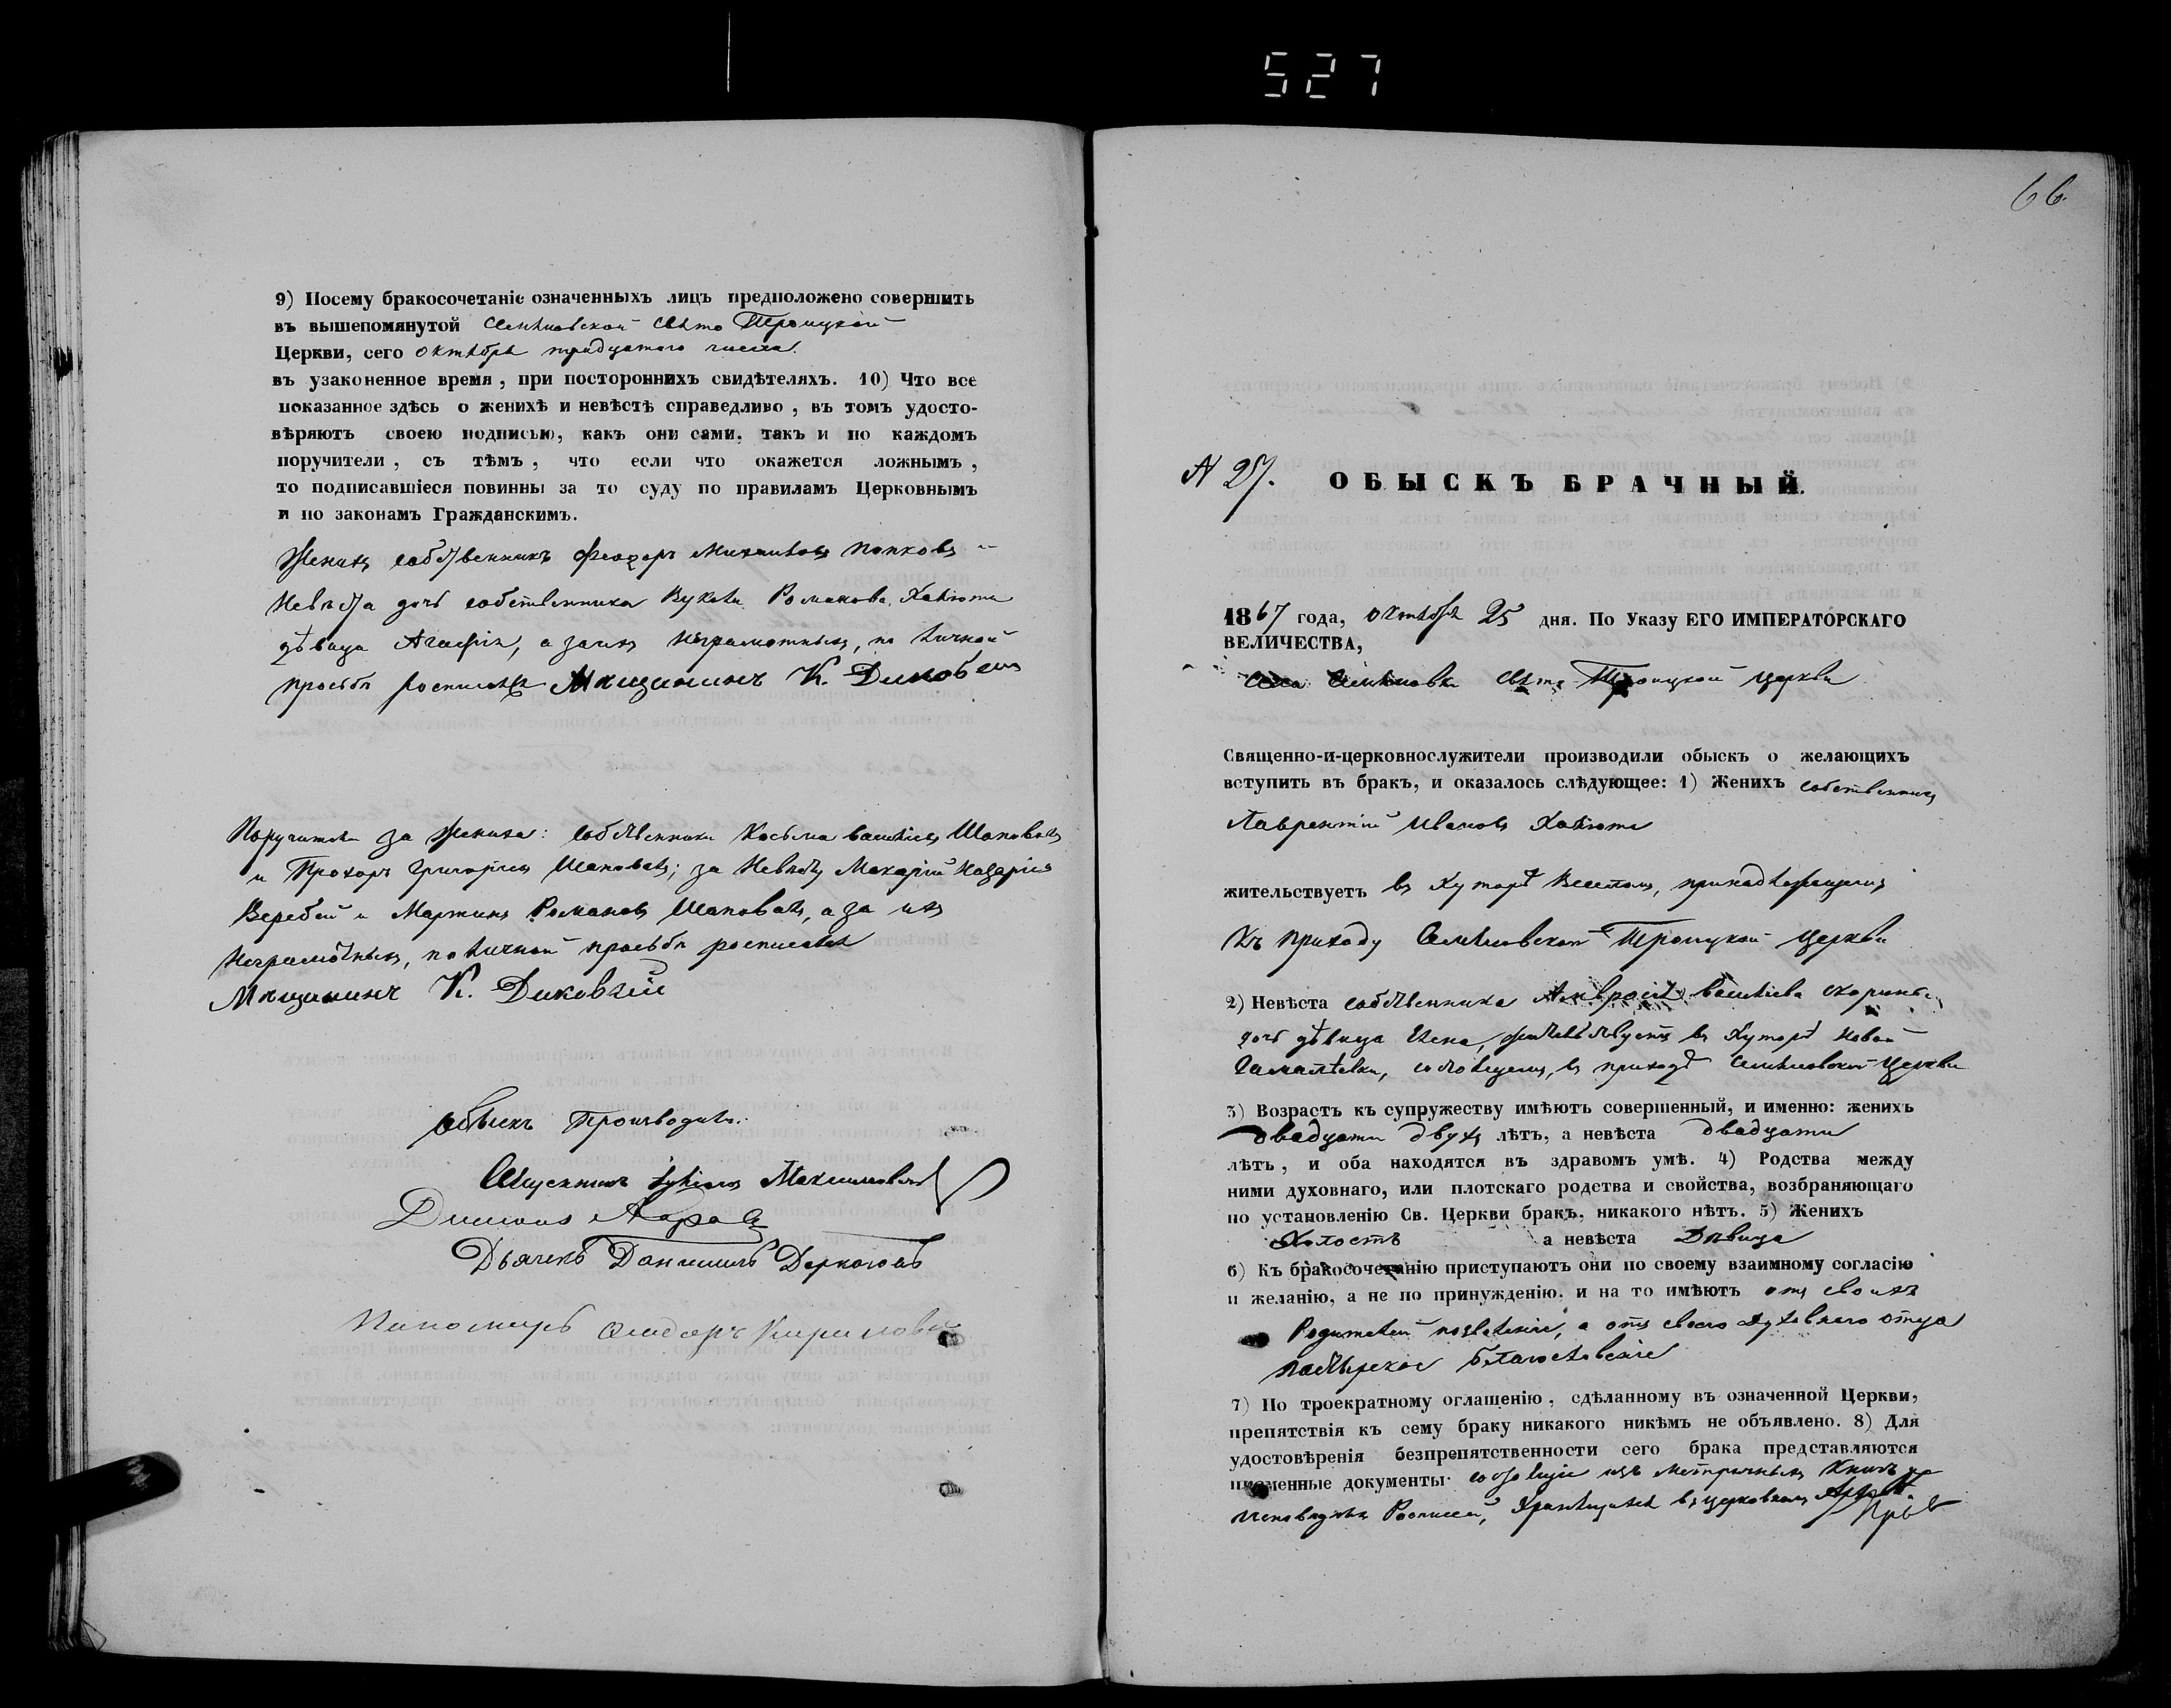 527
9) Посему бракосочетаніе означенныхъ лицъ предположено совершить
въ вышепомянутой Семеновской Свято Троицкой
Церкви, сего октября тридцатого числа.
въ узаконенное время, при постороннихъ свидѣтеляхъ. 10) Что все
показанное здѣсь о женихѣ и невѣстѣ справедливо, въ томъ удосто-
вѣряютъ своею подписью, какъ они сами, такъ и по каждомъ
поручители, съ тѣмъ, что если что окажется ложнымъ,
то подписавшіеся повинны за то суду по правиламъ Церковнымъ
и по законамъ Гражданскимъ.
Женихъ собственникъ Феодоръ Михаиловъ Попковъ и
Невѣста дочь собственника Романова
дѣвица Агафія, а за ихъ неграмотныхъ, по личной
просьбѣ росписался Мѣщанинъ К.
Поручители за жениха: собственники Косьма Васильевъ Шаповалъ
и Прохоръ Григорьевъ Шаповалъ; за Невѣсту Макарій Назаріевъ
Веребей и Мартинъ Романовъ Шаповалъ, а за ихъ
неграмотныхъ, по личной просьбѣ росписался
Мѣщанинъ К. Диковскій
Обыскъ Производили:
Священникъ Максимовичъ
Дьячекъ Даніилъ
Пономарь
66.
N 27. ОБЫСКЪ БРАЧНЫЙ.
1867 года, октября 25 дня. По Указу ЕГО ИМПЕРАТОРСКАГО
ВЕЛИЧЕСТВА,
Села Семеновки Свято Троицкой церкви
Священно-и-церковнослужители производили обыскъ о желающихъ
вступить въ бракъ, и оказалось слѣдующее: 1) Женихъ собственникъ
Лаврентій Ивановъ
жительствуетъ въ Хуторѣ Веселомъ, принадлежащемъ
къ приходу Семеновской Троицкой церкви
2) Невѣста собственника Амвросія Васильева
дочь дѣвица Елена, жительствуетъ въ Хуторѣ Новой
Гамалѣевки, состоящемъ, въ приходѣ Семеновской церкви
3) Возрастъ къ супружеству имѣютъ совершенный, и именно: женихъ
двадцати двухъ лѣтъ, а невѣста двадцати
лѣтъ, и оба находятся въ здравомъ умѣ. 4) Родства между
ними духовнаго, или плотскаго родства и свойства, возбраняющаго
по установленію Св. Церкви бракъ, никакого нѣтъ. 5) Женихъ
Холостъ а невѣста Дѣвица
6) Къ бракосочетанію приступаютъ они по своему взаимному согласію
и желанію, а не по принужденію, и на то имѣютъ отъ своихъ
Родителей позволеніе, а отъ своего духовнаго отца
пастырское благословеніе
7) По троекратному оглашенію, сдѣланному въ означенной Церкви,
препятствія къ сему браку никакого никѣмъ не объявлено. 8) Для
удостовѣренія безпрепятственности сего брака представляются
письменные документы изъ метричныхъ книгъ
исповѣдныхъ Росписей, хранящихся въ церковномъ Архивѣ